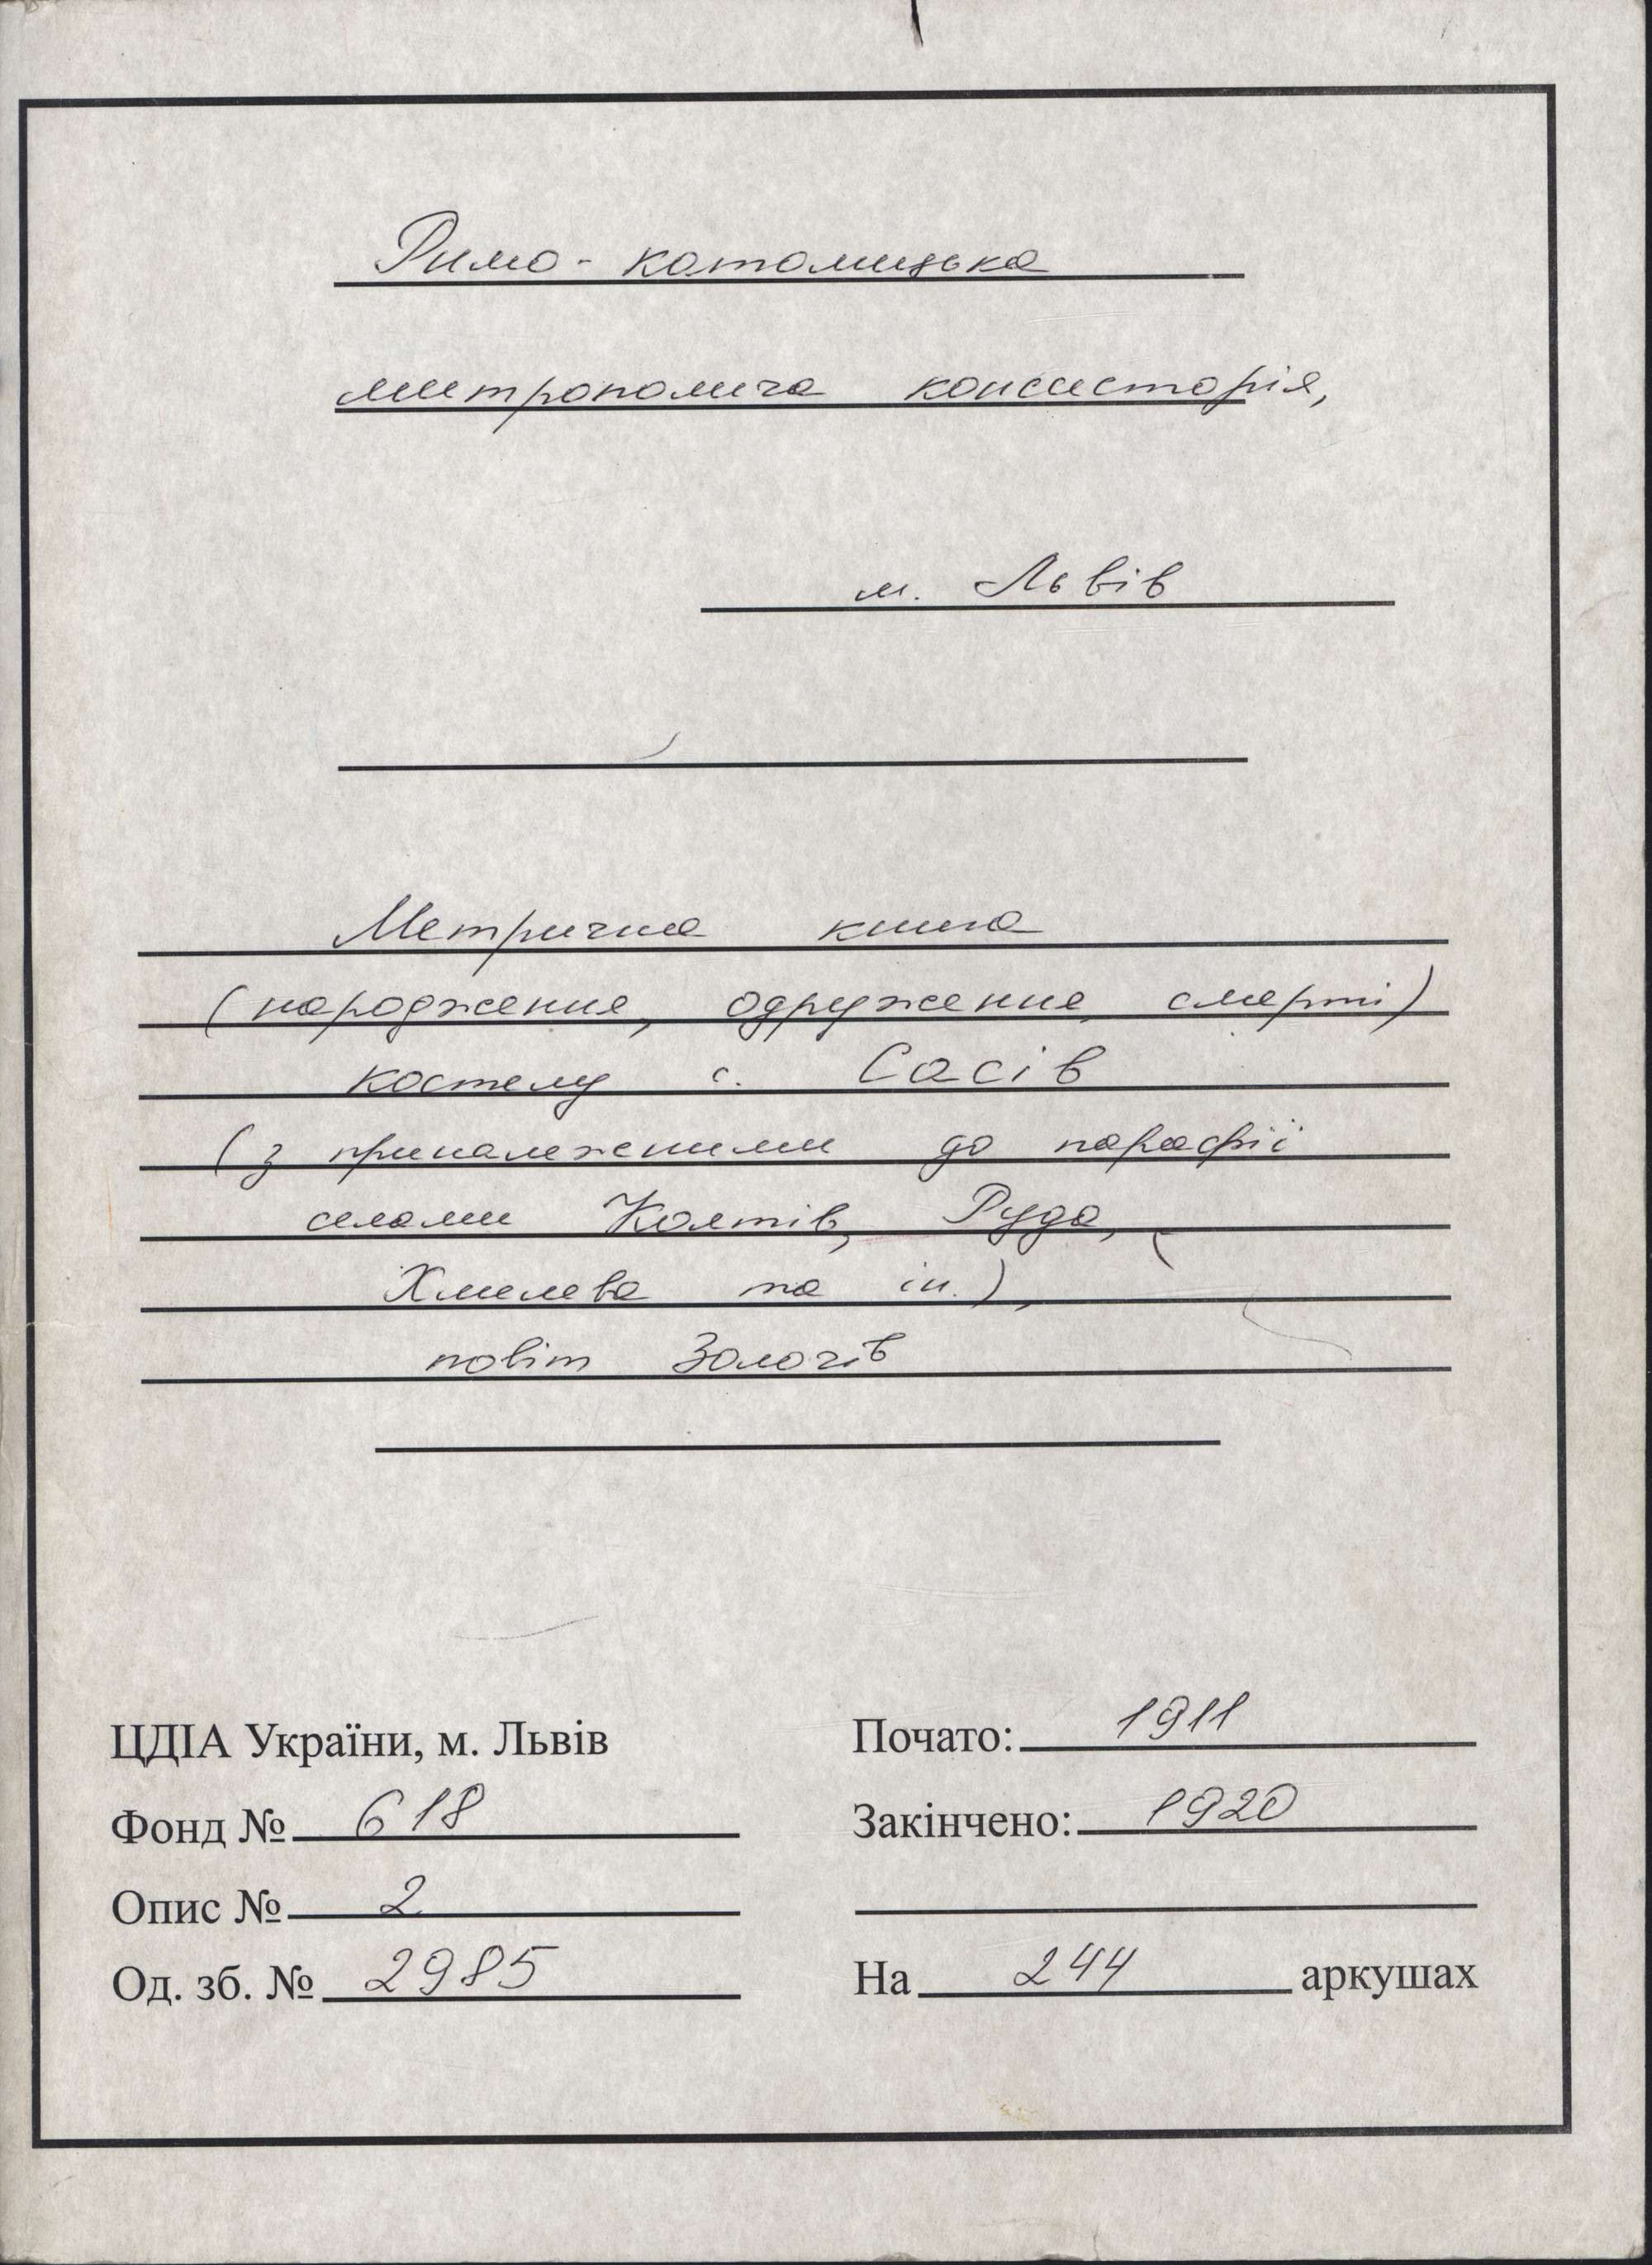 Римо-католицька
митрополича консисторія,
м. Львів
Метрична книга
(народження, одруження, смерті)
костелу с. Сасів
(з приналежними до парафії
селами Колтів, Руда,
Хмелева та ін.),
повіт Золочів
ЦДІА України, м. Львів
Фонд № 618
Опис № 2
Од. зб. № 2985
Почато: 1911
Закінчено: 1920
На 244 аркушах